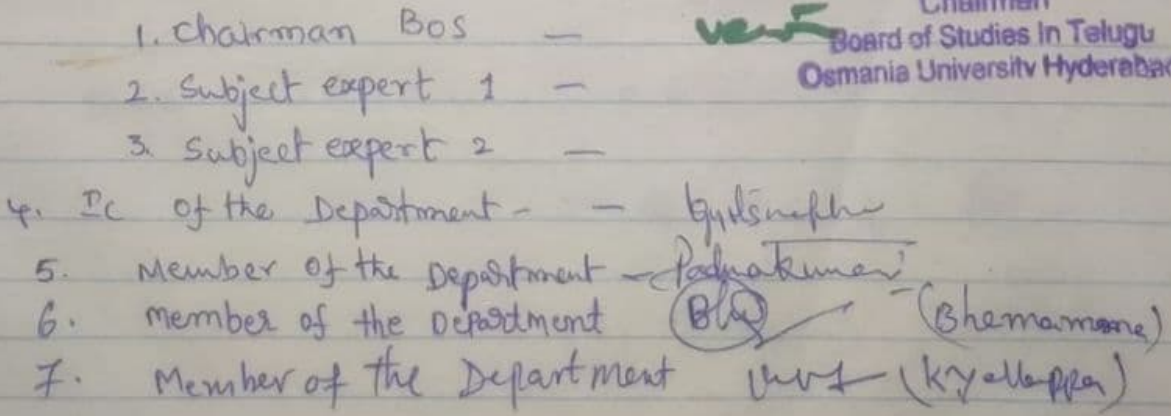 Chairman
1. Chairman BOS —
Board of Studies In Telugu
Osmania University Hyderabad
2. Subject expert 1 —
3. Subject expert 2 —
4. IC of the Department - —
5. Member of the Department - Padmakumari
6. member of the Department - (Bhemamma)
7. Member of the Department (K yellappa)